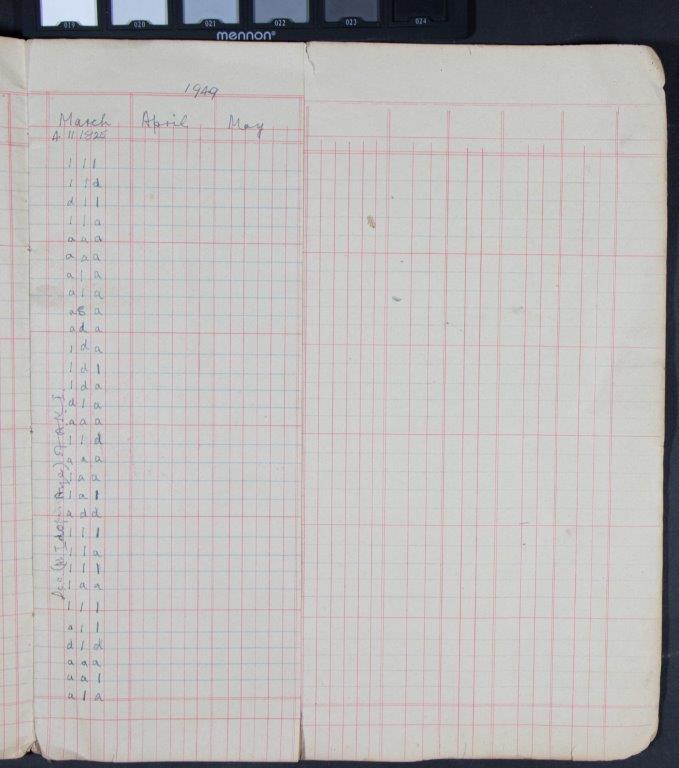 019 020 021 022 023 024
mennon®
1949
March April May
4 11 18 25
1 1 1
1 1 d
d 1 1
1 1 a
a a a
a a a
a 1 a
a 1 a
a S a
a d a
1 d a
1 d 1
1 d a
d 1 a
a a a
1 1 d
a a a
1 a a
1 a 1
a d d
1 1 1
1 1 a
1 1 1
1 a a
1 1 1
a 1 1
d 1 d
a a a
a a 1
a 1 a